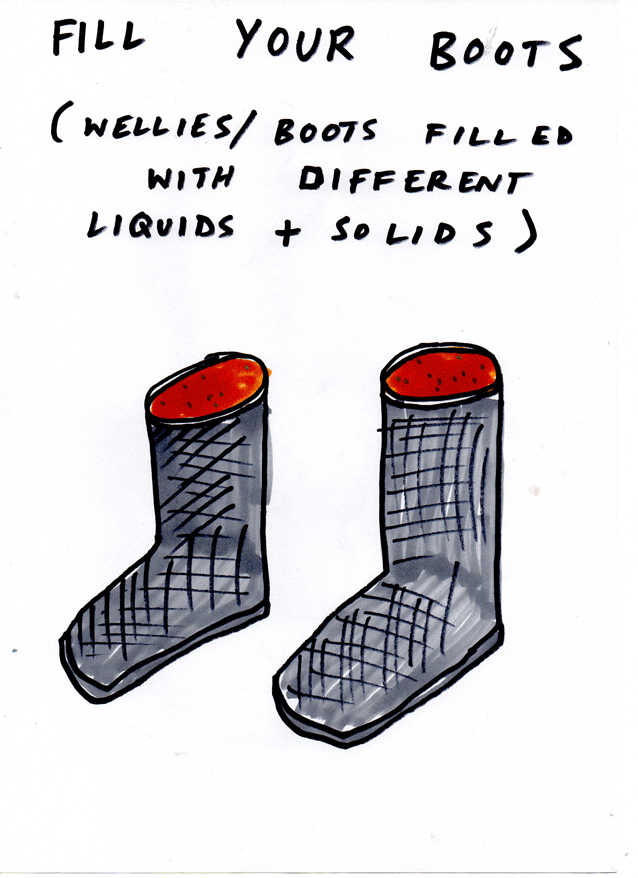 FILL YOUR BOOTS
(WELLIES/BOOTS FILLED
WITH DIFFERENT
LIQUIDS + SOLIDS)